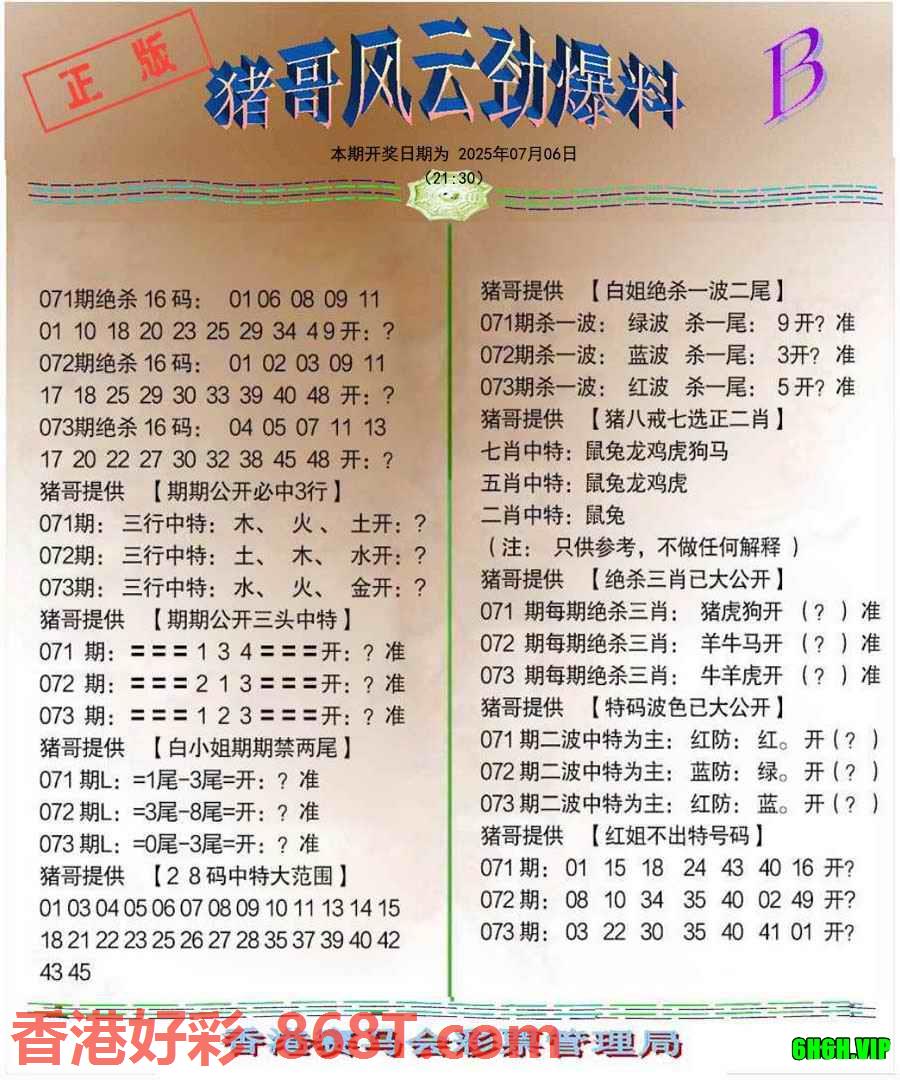 正版
猪哥风云劲爆料
B
本期开奖日期为 2025年07月06日
(21:30)
071期绝杀16码： 01 06 08 09 11
01 10 18 20 23 25 29 34 49开：?
072期绝杀16码： 01 02 03 09 11
17 18 25 29 30 33 39 40 48 开：?
073期绝杀16码： 04 05 07 11 13
17 20 22 27 30 32 38 45 48 开：?
猪哥提供 【期期公开必中3行】
071期： 三行中特： 木、 火、 土开：?
072期： 三行中特： 土、 木、 水开：?
073期： 三行中特： 水、 火、 金开：?
猪哥提供 【期期公开三头中特】
071 期：〓〓〓134〓〓〓开：? 准
072 期：〓〓〓213〓〓〓开：? 准
073 期：〓〓〓123〓〓〓开：? 准
猪哥提供 【白小姐期期禁两尾】
071期L：=1尾-3尾=开：? 准
072期L：=3尾-8尾=开：? 准
073期L：=0尾-3尾=开：? 准
猪哥提供 【28码中特大范围】
01 03 04 05 06 07 08 09 10 11 13 14 15
18 21 22 23 25 26 27 28 35 37 39 40 42
43 45
猪哥提供 【白姐绝杀一波二尾】
071期杀一波： 绿波 杀一尾： 9开? 准
072期杀一波： 蓝波 杀一尾： 3开? 准
073期杀一波： 红波 杀一尾： 5开? 准
猪哥提供 【猪八戒七选正二肖】
七肖中特：鼠兔龙鸡虎狗马
五肖中特：鼠兔龙鸡虎
二肖中特：鼠兔
(注： 只供参考，不做任何解释)
猪哥提供 【绝杀三肖已大公开】
071 期每期绝杀三肖： 猪虎狗开 (?)准
072 期每期绝杀三肖： 羊牛马开 (?)准
073 期每期绝杀三肖： 牛羊虎开 (?)准
猪哥提供 【特码波色已大公开】
071期二波中特为主：红防：红。开(?)
072期二波中特为主：蓝防：绿。开(?)
073期二波中特为主：红防：蓝。开(?)
猪哥提供 【红姐不出特号码】
071期： 01 15 18 24 43 40 16 开?
072期： 08 10 34 35 40 02 49 开?
073期： 03 22 30 35 40 41 01 开?
香港好彩-868T.com
香港赛马会彩票管理局
6H6H.VIP